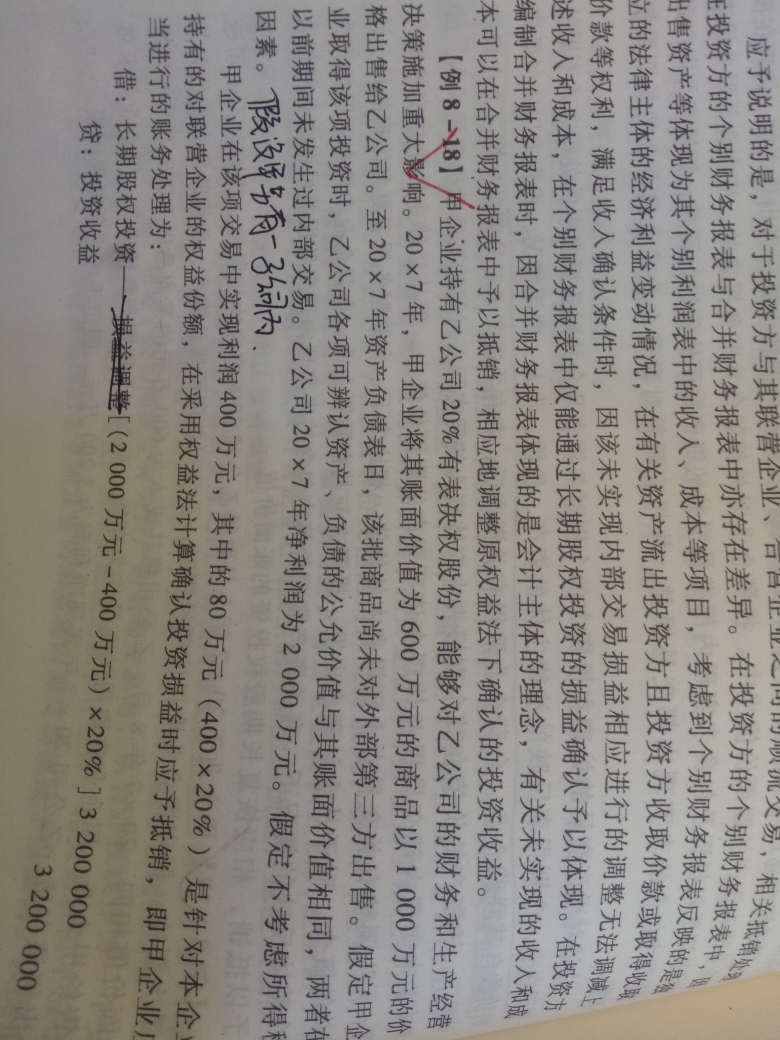 应予说明的是，对于投资方与其联营企业、合营企业之间的顺流交易，相关抵销处
在投资方的个别财务报表与合并财务报表中亦存在差异。在投资方的个别财务报表中，
出售资产等体现为其个别利润表中的收入、成本等项目，考虑到个别财务报表反映的是
立的法律主体的经济利益变动情况，在有关资产流出投资方且投资方收取价款或取得收取
价款等权利，满足收入确认条件时，因该未实现内部交易损益相应进行的调整无法调减上
述收入和成本，在个别财务报表中仅能通过长期股权投资的损益确认予以体现。在投资方
编制合并财务报表时，因合并财务报表体现的是会计主体的理念，有关未实现的收入和成
本可以在合并财务报表中予以抵销，相应地调整原权益法下确认的投资收益。
【例 8-18】甲企业持有乙公司20%有表决权股份，能够对乙公司的财务和生产经营
决策施加重大影响。20×7年，甲企业将其账面价值为600万元的商品以1 000万元的价
格出售给乙公司。至20×7年资产负债表日，该批商品尚未对外部第三方出售。假定甲企
业取得该项投资时，乙公司各项可辨认资产、负债的公允价值与其账面价值相同，两者在
以前期间未发生过内部交易。乙公司20×7年净利润为2 000万元。假定不考虑所得税
因素。假设甲另有一子公司丙.
甲企业在该项交易中实现利润400万元，其中的80万元（400×20%）是针对本企业
持有的对联营企业的权益份额，在采用权益法计算确认投资损益时应予抵销，即甲企业应
当进行的账务处理为：
借：长期股权投资——损益调整[(2 000万元-400万元)×20%] 3 200 000
贷：投资收益 3 200 000